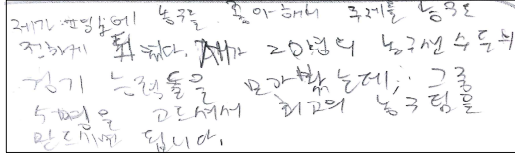 제가 연딜남에 농구를 좋아해서 주제를 농구로
전하게 됐다. 제가 20명의 농구선수들의
경기 능력들을 모과봤는데, 그중
5명을 고르셔서 최고의 농구팀을
만드시면 됩니다.